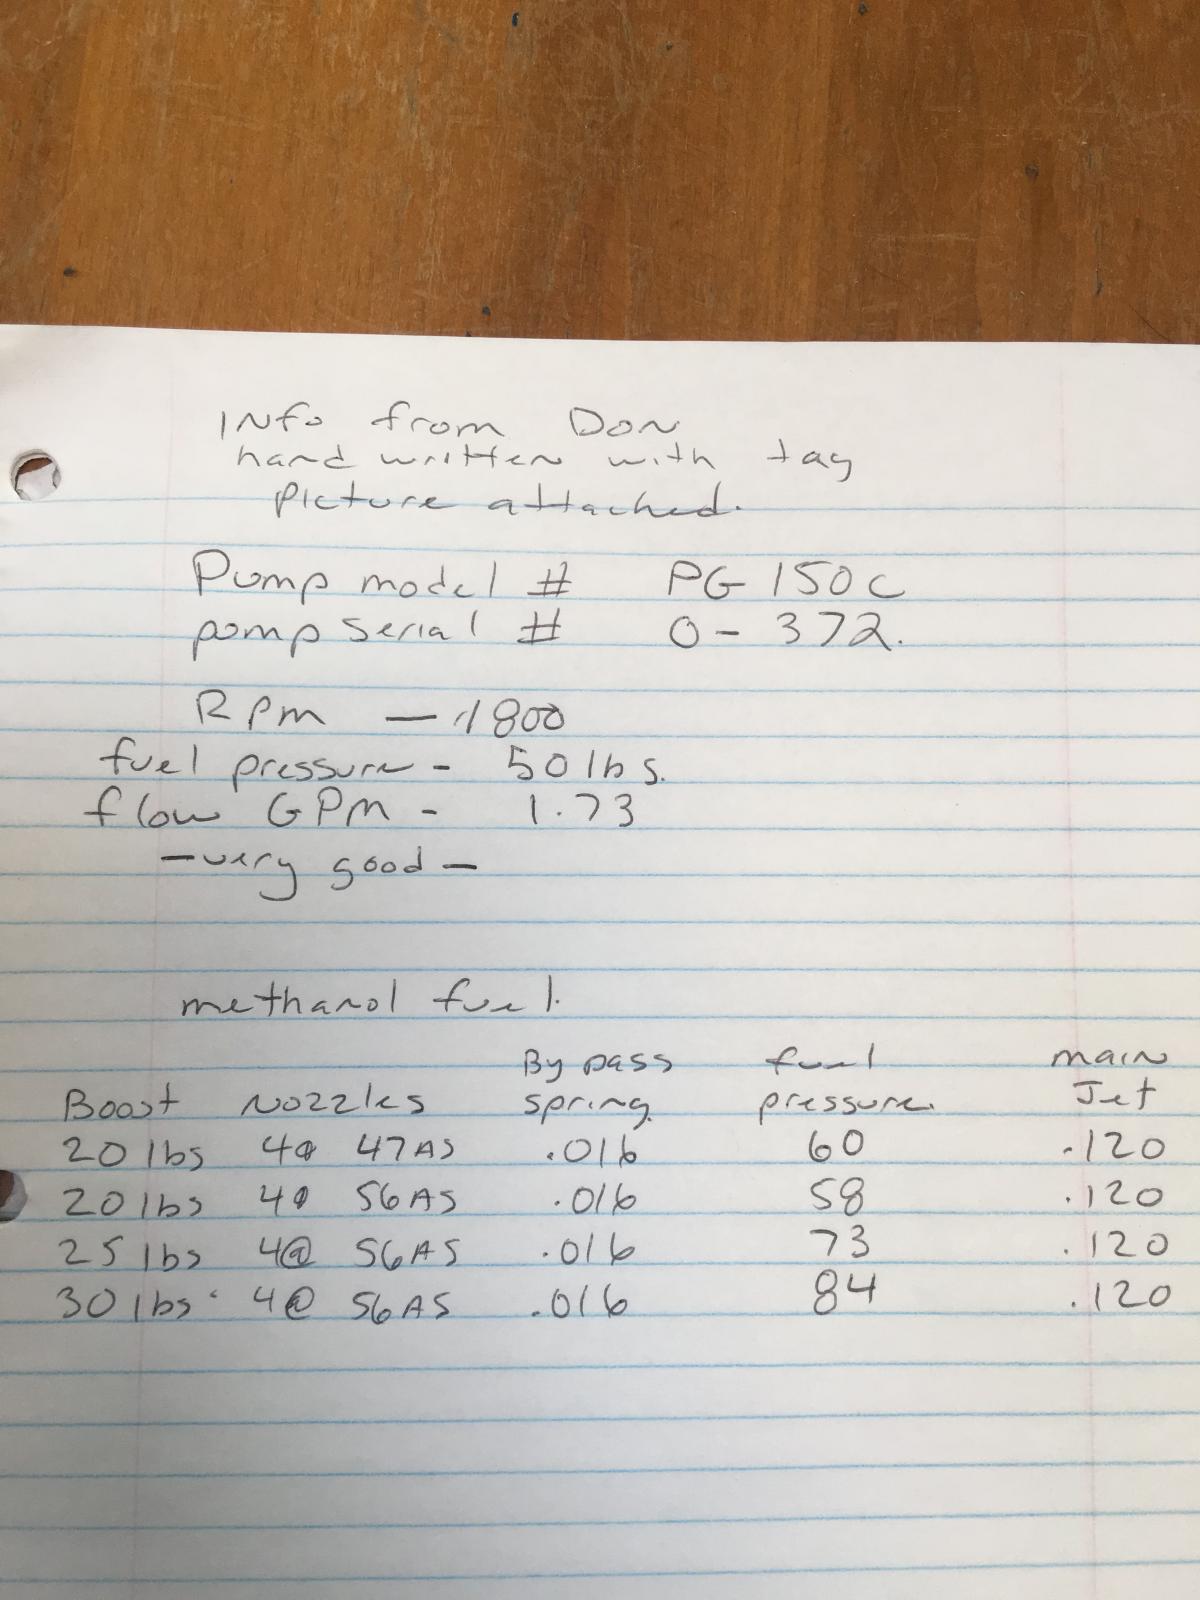 INfo from DON
hand written with tag
picture attached.
Pump model # PG 150C
pump serial # 0-372.
RPM — 1800
fuel pressure - 50 lbs.
flow GPM - 1.73
- very good -
methanol fuel.
By pass fuel main
Boost Nozzles spring. pressure. Jet
20 lbs 4@ 47AS .016 60 .120
20 lbs 4@ 56AS .016 58 .120
25 lbs 4@ 56AS .016 73 .120
30 lbs 4@ 56AS .016 84 .120